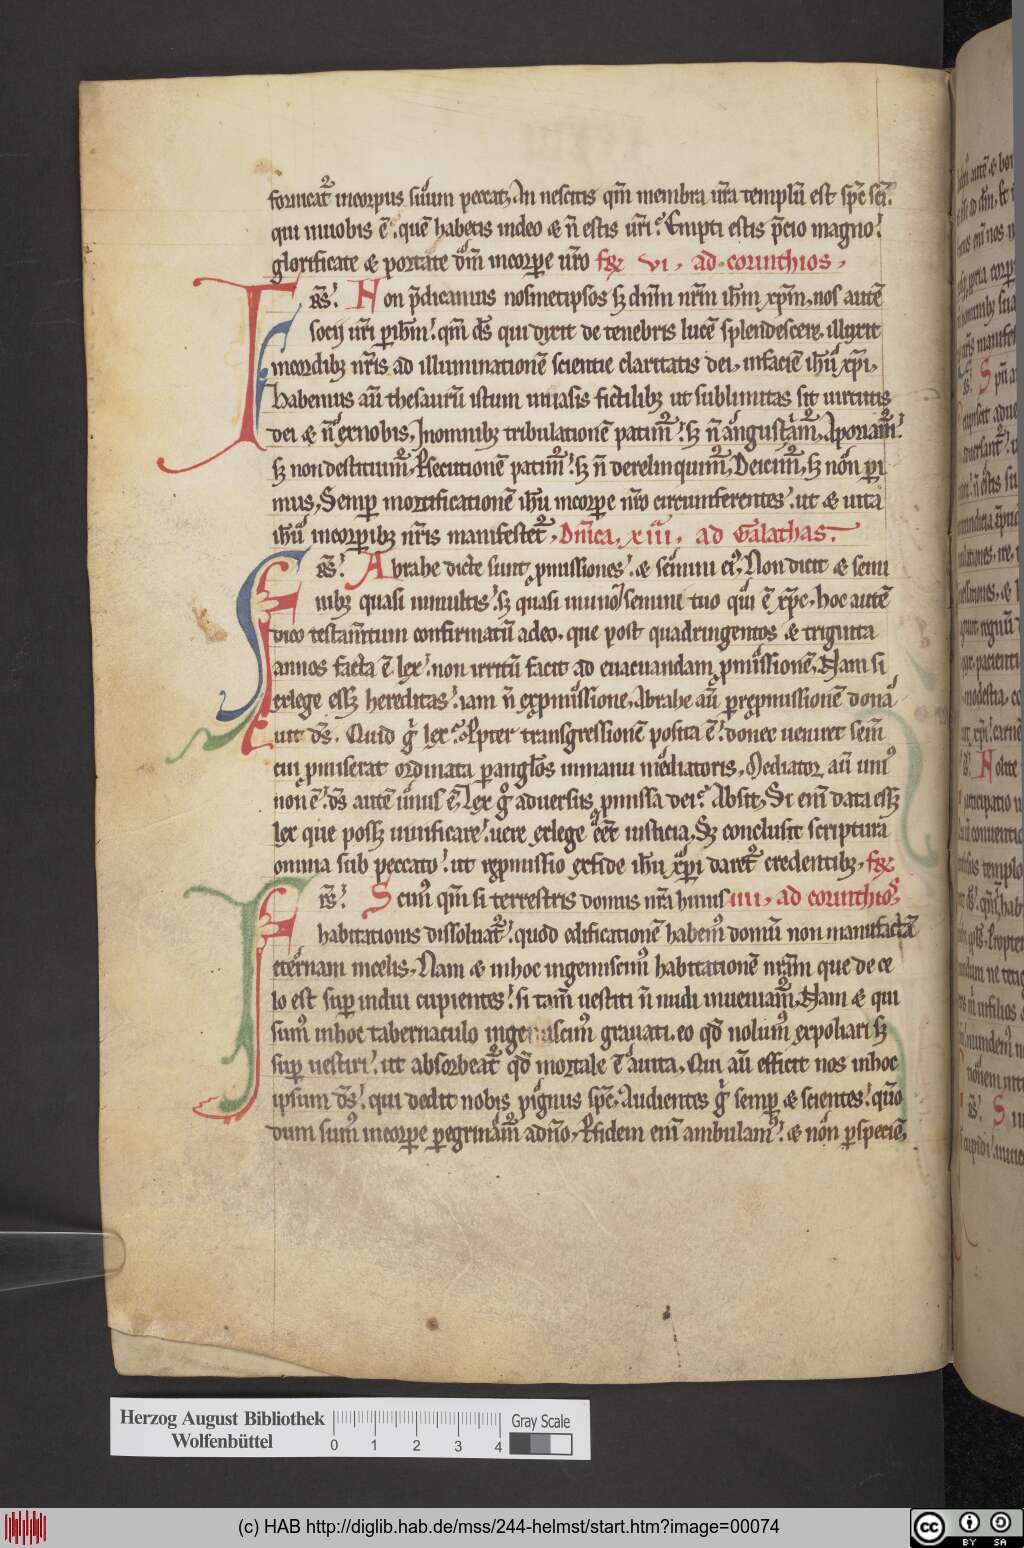 fornicat᷑ incorpus suūm peccat, An nescitis qm̄ membra ur̄a templū est sp̄c sc̄i.
qui inuobis ē. quē habetis indeo & n̄ estis ur̄i. Empti estis p̄cio magno.
glorificate & portate dm̄ incorpe ur̄o fr̄ vi, ad corinthios,
Fr̄s. Non p̄dicamus nosmetipsos sꝫ dn̄m nr̄m ih̄m xp̄m, nos autē
socij ur̄i p ih̄m. qm̄ ds̄ qui dixit de tenebris lucē splendescere, illuxit
incordibꝫ nr̄is ad illuminationē scientie claritatis dei, infaciē ih̄u xp̄i,
habemus au̅ thesaurū istum inuasis fictilibꝫ ut sublimitas sit uirtutis
dei & n̄ exnobis, Inomnibꝫ tribulationē patim᷑. sꝫ n̄ angustiam᷑, Aporiam᷑.
sꝫ non destituim᷑, Psecutionē patim᷑. sꝫ n̄ derelinquim᷑, Deicim᷑, sꝫ nōn pi
mus, Semp mortificationē ih̄u incorpe nr̄o circumferentes. ut & uita
ih̄ū incorpibꝫ nr̄is manifestet᷑, Dn̄ica, xiii, ad Galathas.
Fr̄s. Abrahe dicte sunt pmissiones. & semini eiꝰ, Non dicit & semi
nibꝫ quasi inmultis. sꝫ quasi inuno semini tuo qui ē xp̄c, hoc autē
dico testam̄tum confirmatū adeo, que post quadringentos & triginta
annos facta ē lex. non irritū facit ad euacuandam pmissionē, Nam si
exlege essꝫ hereditas. iam n̄ expmissione, Abrahe au̅ p repmissionē dona
uit ds̄. Quid g̊ lex. Ppter transgressionē posita ē. donec ueniret sem̄
cui pmiserat ordinata p anglos inmanu mediatoris, Mediator au̅ uniꝰ
non ē. ds̄ autē unus ē, Lex g̊ aduersus pmissa dei. Absit, Si eni̅ data essꝫ
lex que possꝫ uiuificare. uere exlege eēt iusticia, Sꝫ conclusit scriptura
omnia sub peccato. ut repmissio exfide ih̄u xp̄i daret᷑ credentibꝫ, fr̄
Fr̄s. Scimꝰ qm̄ si terrestris domus nr̄a huius iiii, ad corinthios,
habitationis dissoluat᷑. quod edificationē habemꝰ domū non manufactā
eternam incelis, Nam & inhoc ingemiscimꝰ habitationē nr̄am que de ce
lo est sup indui cupientes. si tam̄ uestiti n̄ nudi inueniam᷑, Nam & qui
sumꝰ inhoc tabernaculo ingemiscimꝰ grauati. eo qd̄ nolumꝰ expoliari sꝫ
sup uestiri. ut absorbeat᷑ qd̄ mortale ē auita, Qui au̅ efficit nos inhoc
ipsum ds̄. qui dedit nobis pignus sp̄c, Audientes g̊ semp & scientes. quo
dum sumꝰ incorpe pegrinam᷑ adn̄o, P fidem eni̅ ambulam᷑. & non p speciē,
Herzog August Bibliothek
Wolfenbüttel
0 1 2 3 4
Gray Scale
(c) HAB http://diglib.hab.de/mss/244-helmst/start.htm?image=00074
cc BY SA